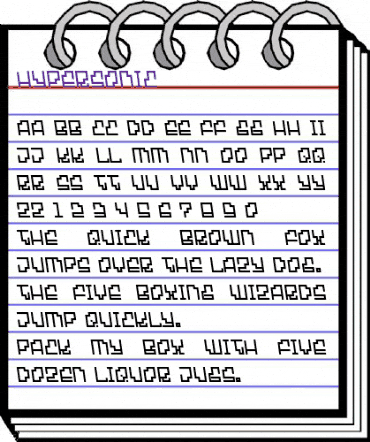 HYPERSONIC
AA BB CC DD EE FF GG HH II
JJ KK LL MM NN OO PP QQ
RR SS TT UU VV WW XX YY
ZZ 1 2 3 4 5 6 7 8 9 0
THE QUICK BROWN FOX
JUMPS OVER THE LAZY DOG.
THE FIVE BOXING WIZARDS
JUMP QUICKLY.
PACK MY BOX WITH FIVE
DOZEN LIQUOR JUGS.